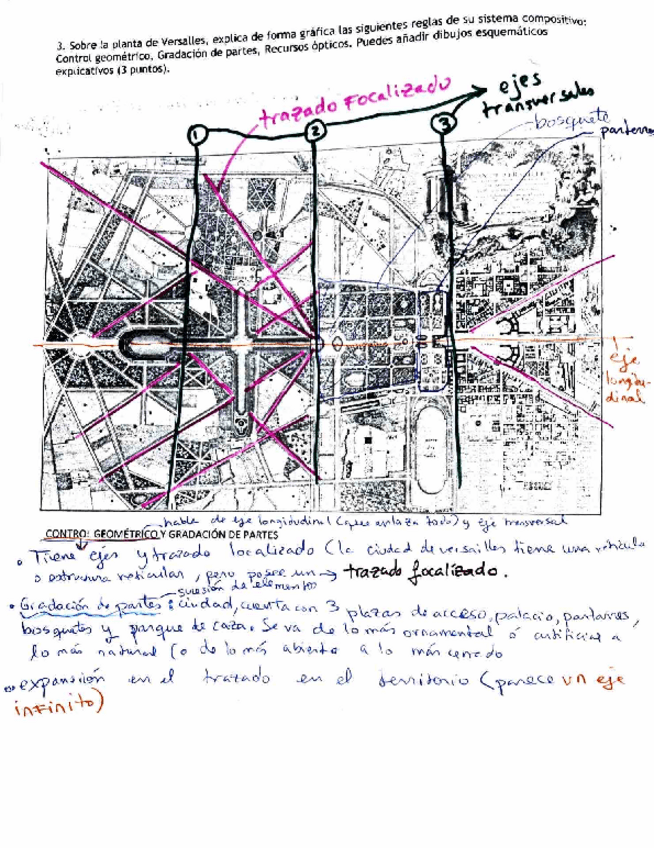 3. Sobre la planta de Versalles, explica de forma gráfica las siguientes reglas de su sistema compositivo:
Control geométrico, Gradación de partes, Recursos ópticos. Puedes añadir dibujos esquemáticos
explicativos (3 puntos).
trazado focalizado
ejes
transversales
1
2
3
bosquete
parterre
eje
longitu-
dinal
habla de eje longitudinal (que enlaza todo) y eje transversal
CONTROL GEOMÉTRICO Y GRADACIÓN DE PARTES
Tiene ejes y trazado localizado (la ciudad de versailles tiene una retícula
o estructura reticular, pero posee un → trazado focalizado.
sucesión de elementos
Gradación de partes: ciudad, cuenta con 3 plazas de acceso, palacio, parterres,
bosquetes y parque de caza. Se va de lo más ornamental o artificial a
lo más natural (o de lo más abierto a lo más cerrado
expansión en el trazado en el territorio (parece un eje
infinito)